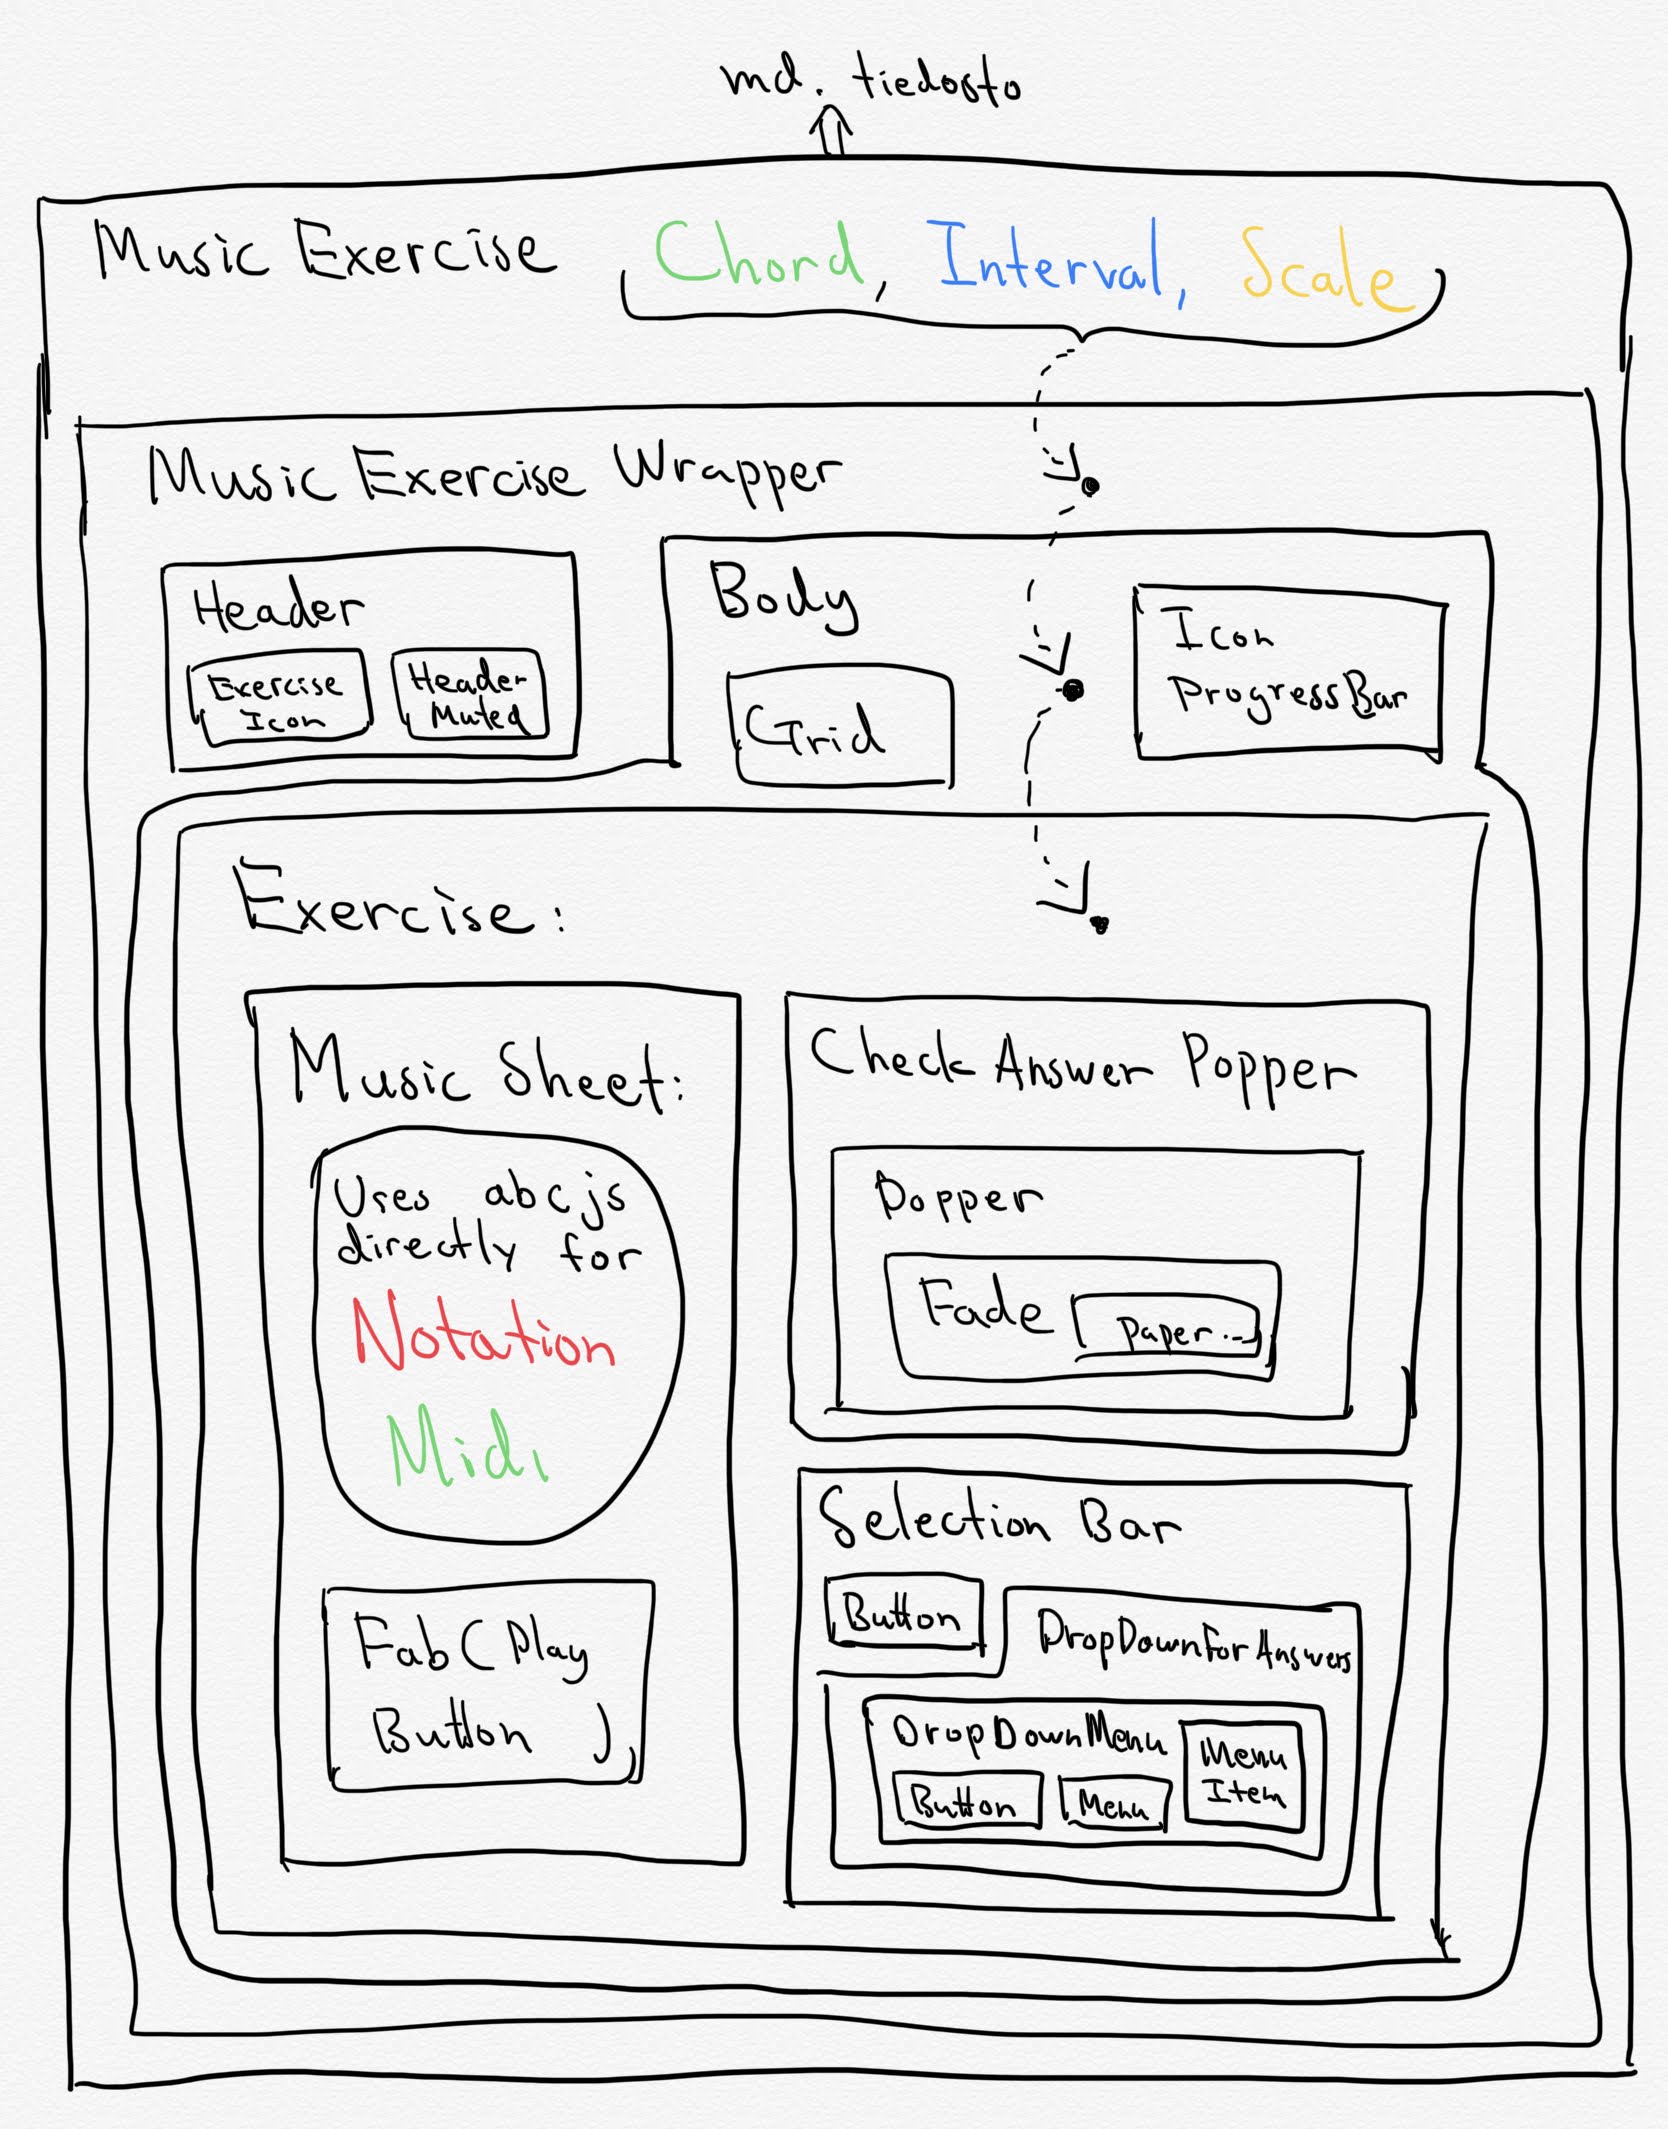 md. tiedosto
Music Exercise Chord, Interval, Scale
Music Exercise Wrapper
Header
Exercise
Icon
Header
Muted
Body
Grid
Icon
ProgressBar
Exercise:
Music Sheet:
Uses abcjs
directly for
Notation
Midi
Fab (Play
Button )
Check Answer Popper
Popper
Fade
Paper...
Selection Bar
Button
DropDownForAnswers
DropDownMenu
Button
Menu
Menu
Item